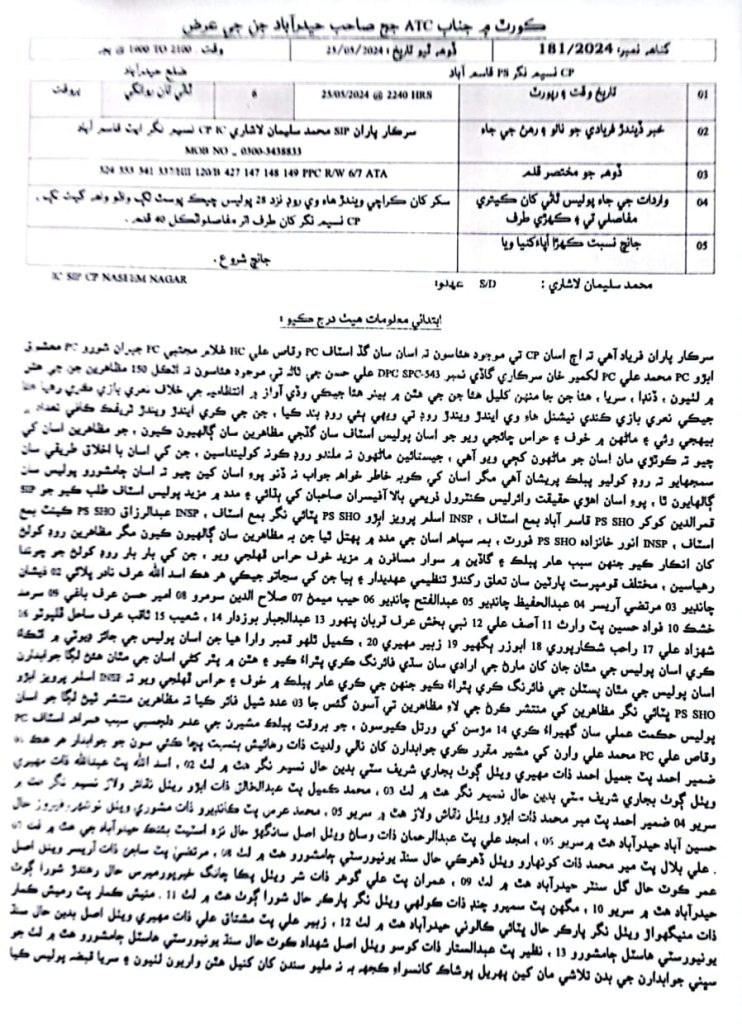 ڪورٽ ۾ جناب ATC جج صاحب حيدرآباد جن جي عرض
گناهه نمبر: 181/2024 ڏوهه ٿيو تاريخ: 25/05/2024 وقت . 1000 TO 2100 @ بجي
CP نسيم نگر PS قاسم آباد ضلع حيدرآباد
01 تاريخ وقت ۽ رپورٽ 25/05/2024 @ 2240 HRS 6 ٿاڻي تان روانگي بروقت
02 خبر ڏيندڙ فريادي جو نالو ۽ رهڻ جي جاءِ سرڪار پاران SIP محمد سليمان لاشاري IC CP نسيم نگر قاسم آباد
MOB NO _ 0300-3438833
03 ڏوهه جو مختصر قلم 324 353 341 337HII 120/B 427 147 148 149 PPC R/W 6/7 ATA
04 واردات جي جاءِ پوليس ٿاڻي کان ڪيتري مفاصلي تي ۽ ڪهڙي طرف سکر کان ڪراچي ويندڙ هاءِ وي روڊ نزد 28 پوليس چيڪ پوسٽ لڳ واهه گيٽ لڳ ,
CP نسيم نگر کان طرف اتر مفاصلو اٽڪل 40 قدم .
05 جاچ نسبت ڪهڙا اپاءَ کنيا ويا جاچ شروع .
محمد سليمان لاشاري : S/D عهدو: IC SIP CP NASEEM NAGAR
ابتدائي معلومات هيٺ درج ڪيو :
سرڪار پاران فرياد آهي ته اڄ اسان CP تي موجود هئاسون ته اسان سان گڏ اسٽاف PC وقاص علي HC غلام مجتبيٰ PC جبران شورو PC معشوق
ابڙو PC محمد علي PC لکمير خان سرڪاري گاڏي نمبر DPC SPC-543 علي حسن جي ٿاڻه تي موجود هئاسون ته اٽڪل 150 مظاهرين جن جي هٿن
۾ لٺيون , ڏنڊا , سريا , هئا جن جا منهن کليل هئا جن جي هٿن ۾ بينر هئا جيڪي وڏي آواز ۾ انتظاميه جي خلاف نعري بازي ڪري رهيا هئا
جيڪي نعري بازي ڪندي نيشنل هاءِ وي ايندڙ ويندڙ روڊ تي ويهي ٻئي روڊ بند ڪيا , جن جي ڪري ايندڙ ويندڙ ٽريفڪ ڪافي تعداد ۾
بيهجي وئي ۽ ماڻهن ۾ خوف ۽ حراس ڇائجي ويو جو اسان پوليس اسٽاف سان گڏجي مظاهرين سان ڳالهيون ڪيون , جو مظاهرين اسان کي
چيو ته ڪوٽڙي مان اسان جو ماڻهون کڄي ويو آهي , جيستائين ماڻهون نه ملندو روڊ ڪونه کولينداسين , جن کي اسان با اخلاق طريقي سان
سمجهايو ته روڊ کوليو پبلڪ پريشان آهي مگر اسان کي ڪوبه خاطر خواهه جواب نه ڏنو پوءِ اسان کين چيو ته اسان ڄامشورو پوليس سان
ڳالهايون ٿا , پوءِ اسان اهڙي حقيقت وائرليس ڪنٽرول ذريعي بالا آفيسران صاحبان کي ٻڌائي ۽ مدد ۾ مزيد پوليس اسٽاف طلب ڪيو جو SIP
قمرالدين کوکر PS SHO قاسم آباد بمع اسٽاف , INSP اسلم پرويز ابڙو PS SHO ڀٽائي نگر بمع اسٽاف , INSP عبدالرزاق PS SHO ڪينٽ بمع
اسٽاف , INSP انور خانزاده PS SHO فورٽ , بمه سپاهه اسان جي مدد ۾ پهتل ٿيا جن به مظاهرين سان ڳالهيون ڪيون مگر مظاهرين روڊ کولڻ
کان انڪار ڪيو جنهن سبب عام پبلڪ ۽ گاڏين ۾ سوار مسافرن ۾ مزيد خوف حراس ڦهلجي ويو , جن کي بار بار روڊ کولڻ جو چوندا
رهياسين , مختلف قومپرست پارٽين سان تعلق رکندڙ تنظيمي عهديدار ۽ ٻيا جن کي سڃاتو جيڪي هر هڪ اسد الله عرف نادر ڀلائي 02 ذيشان
چانڊيو 03 مرتضيٰ آريسر 04 عبدالحفيظ چانڊيو 05 عبدالفتح چانڊيو 06 حبيب ميمڻ 07 صلاح الدين سومرو 08 امير حسن عرف باغي 09 سرمد
خشڪ 10 فواد حسين پٽ وارث 11 آصف علي 12 نبي بخش عرف قربان پنهور 13 عبدالجبار بوزدار 14 , شعيب 15 ثاقب عرف ساحل قلپوٽو 16
شهزاد علي 17 راحب شڪارپوري 18 ابوزر ٻگهيو 19 زبير مهيري 20 , ڪميل ٿلهو قمبر وارا هيا جن اسان پوليس جي جائز ڊيوٽي ۾ اٽڪاءُ
ڪري اسان پوليس جي مٿان جان کان مارڻ جي ارادي سان سڌي فائرنگ ڪري پٿراءُ ڪيو ۽ هٿن ۾ پٿر کڻي اسان جي مٿان هڻڻ لڳا جوابدارن
اسان پوليس جي مٿان پسٽلن جي فائرنگ ڪري پٿراءُ ڪيو جنهن جي ڪري عام پبلڪ ۾ خوف ۽ حراس ڦهلجي ويو ته INSP اسلم پرويز ابڙو
PS SHO ڀٽائي نگر مظاهرين کي منتشر ڪرڻ جي لاءِ مظاهرين تي آنسو گئس جا 03 عدد شيل فائر ڪيا ته مظاهرين منتشر ٿيڻ لڳا جو اسان
پوليس حڪمت عملي سان گهيراءُ ڪري 14 مڙسن کي ورتل ڪيوسون , جو بروقت پبلڪ مشيرن جي عدم دلچسپي سبب همراهه اسٽاف PC
وقاص علي PC محمد علي وارن کي مشير مقرر ڪري جوابدارن کان نالي ولديت ذات رهائش بنسبت پڇا ڪئي سون جو جوابدار هر هڪ 01
ضمير احمد پٽ جميل احمد ذات مهيري ويٺل ڳوٺ بجاري شريف سٽي بدين حال نسيم نگر هٿ ۾ لٺ 02 , اسد الله پٽ عبدالله ذات مهيري
ويٺل ڳوٺ بجاري شريف سٽي بدين حال نسيم نگر هٿ ۾ لٺ 03 , محمد ڪميل پٽ عبدالخالق ذات ابڙو ويٺل نقاش ولاز نسيم نگر هٿ ۾
سريو 04 ضمير احمد پٽ مير محمد ذات ابڙو ويٺل نقاش ولاز هٿ ۾ سريو 05 , محمد عرس پٽ ڪانڊيرو ذات مشوري ويٺل نوشهروفيروز حال
حسين آباد حيدرآباد هٿ ۾ سريو 06 , امجد علي پٽ عبدالرحمان ذات وساڻ ويٺل اصل سانگهڙ حال نزد اسٽيٽ بئنڪ حيدرآباد جي هٿ ۾ لٺ 07
. علي بلال پٽ مير محمد ذات ڪونهارو ويٺل ڏهرڪي حال سنڌ يونيورسٽي ڄامشورو هٿ ۾ لٺ 08 , مرتضيٰ پٽ سابن ذات آريسر ويٺل اصل
عمر ڪوٽ حال گل سنٽر حيدرآباد هٿ ۾ لٺ 09 , عمران پٽ علي گوهر ذات شر ويٺل پڪا چانگ خيرپورميرس حال رهندڙ شورا ڳوٺ
حيدرآباد هٿ ۾ سريو 10 , مگهن پٽ سميرو چند ذات ڪولهي ويٺل نگر پارڪر حال شورا ڳوٺ هٿ ۾ لٺ 11 . منيش ڪمار پٽ رميش ڪمار
ذات منيگهواڙ ويٺل نگر پارڪر حال ڀٽائي ڪالوني حيدرآباد هٿ ۾ لٺ 12 , زبير علي پٽ مشتاق علي ذات مهيري ويٺل اصل بدين حال سنڌ
يونيورسٽي هاسٽل ڄامشورو 13 , نظير پٽ عبدالستار ذات کوسو ويٺل اصل شهداد ڪوٽ حال سنڌ يونيورسٽي هاسٽل ڄامشورو هٿ ۾ لٺ جو
سڀني جوابدارن جي بدن تلاشي مان کين پهريل پوشاڪ کانسواءِ ڪجهه به نه مليو سندن کان کنيل هٿن واريون لٺيون ۽ سريا قبضه پوليس ڪيا